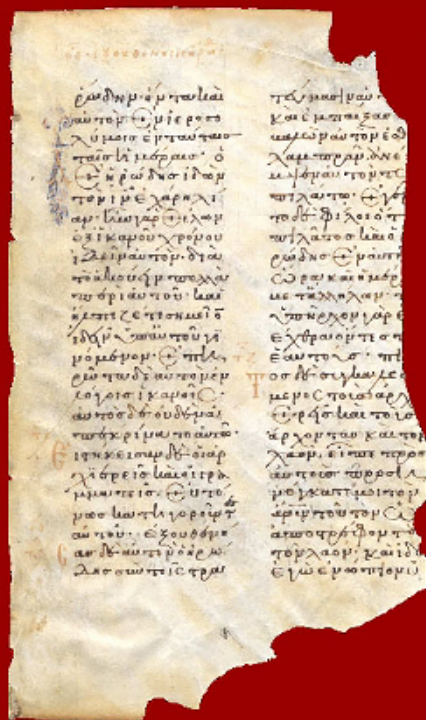 ρώδην· ὄντα καὶ
αὐτὸν + ἐν ἱεροσο
λύμοις ἐν ταύταις
ταῖς ἡμέραις· ὁ
+ ἡρώδης ἰδὼν
τὸν ιν ἐχάρη λί
αν· ἦν γὰρ + θέλων
ἐξ ἱκανοῦ χρόνου
ἰδεῖν αὐτὸν· διὰ
τὸ ἀκούειν πολλὰ
περὶ αὐτοῦ· καὶ
ἤλπιζέ τι σημεῖο
ἰδεῖν ὑπ αὐτοῦ γι
νόμενον· + ἐπη
ρώτα δὲ αὐτὸν ἐν
λόγοις ἱκανοῖς·
αὐτὸς δὲ οὐδὲν ἀ
πεκρίνατο αὐτῷ·
εἱστήκεισαν δὲ οἱ ἀρ
χιερεῖς καὶ οἱ γρα
μματεῖς· + εὐτό
νως κατηγοροῦντες
αὐτοῦ· ἐξουθενή
σας δὲ αὐτὸν ὁ ἡρώ
δης σὺν τοῖς στρα
τεύμασιν αὐτ
καὶ ἐμπαίξας
αὐτὸν ἐσθ
λαμπρὰν ἀνέ
πεμψεν αὐτὸν τῷ π
πιλάτῳ· + ἐγέ
το δὲ φίλοι ὅ τε
πιλᾶτος καὶ ὁ
ρώδης + ἐν αὐτῇ
ὥρα καὶ ἡμέρ
μετ ἀλλήλων·
ὑπῆρχον γὰρ ἐ
ἔχθρα ὄντες π
ἑαυτούς· πι
ος δὲ συγκαλεσ
μενος τοὺς ἀρχ
ερεῖς καὶ τοὺς
ἄρχοντας καὶ τὸν
λαὸν, εἶπε πρὸς
αὐτούς· προση
νέγκατέ μοι τὸν
ἄνον τοῦτον ὡς
ἀποστρέφοντα
τὸν λαόν· καὶ ἰδ
ἐγὼ ἐνώπιον ὑ